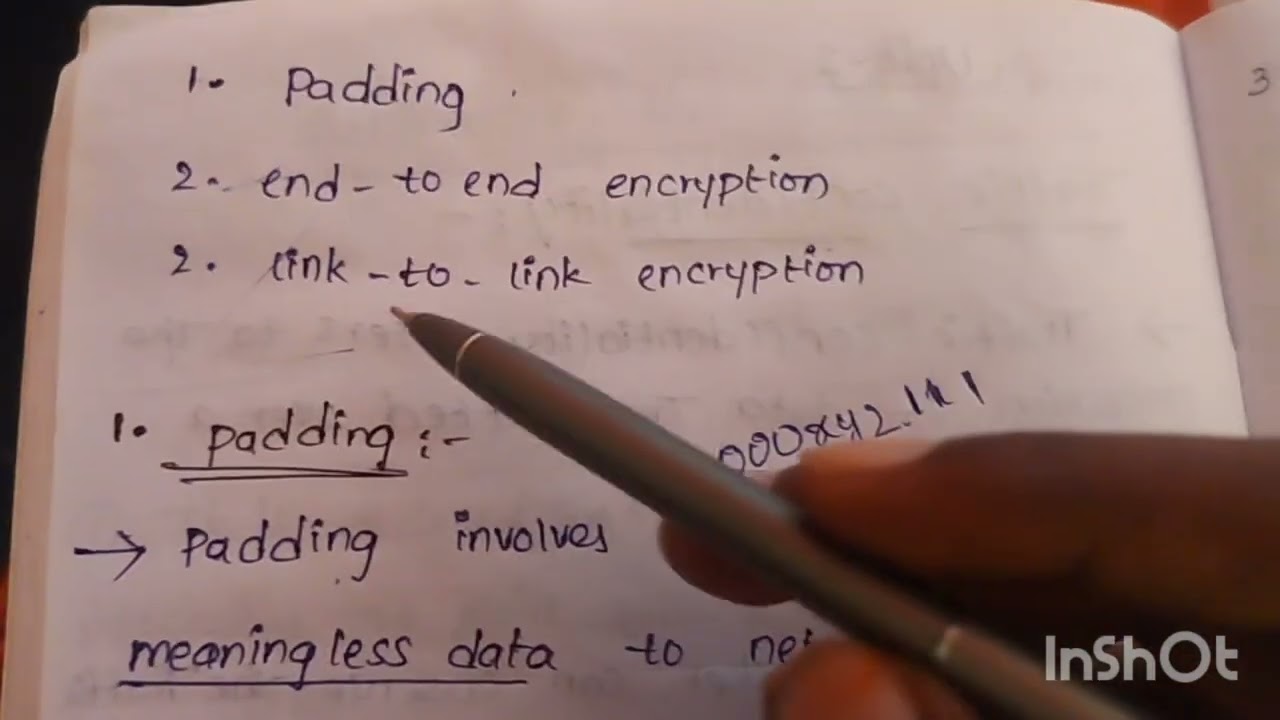 1. Padding
2. end-to end encryption
2. link-to-link encryption
1. padding :-
→ Padding involves
meaningless data to
InShOt
3